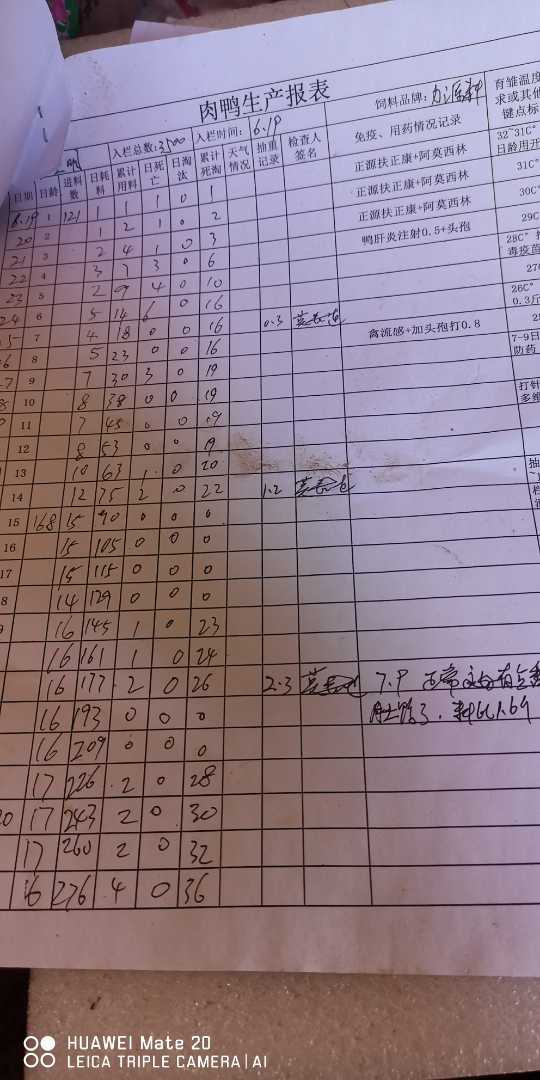 肉鸭生产报表
入栏总数:3500 入栏时间:6.19 饲料品牌:
育雏温度
求或其他
键点标
日期 日龄 进料数 日耗料 累计用料 日死亡 日淘汰 累计死淘 天气情况 抽重记录 检查人签名 免疫、用药情况记录
6.19 1 121 1 1 1 0 1 正源扶正康+阿莫西林 32~31C°
日龄用开
20 2 1 2 1 0 2 正源扶正康+阿莫西林 31C°
21 3 2 4 1 0 3 正源扶正康+阿莫西林 30C°
22 4 3 7 3 0 6 鸭肝炎注射0.5+头孢 29C
23 5 2 9 4 0 10 28C°
毒疫苗
24 6 5 14 6 0 16 27
5 7 4 18 0 0 16 0.3 26C°
0.3斤
6 8 5 23 0 0 16 禽流感+加头孢打0.8
7 9 7 30 3 0 19 7-9日
防药
10 8 38 0 0 19
11 7 45 0 0 19 打针
多维
12 8 53 0 0 19
13 10 63 1 0 20
14 12 75 2 0 22 1.2 抽
15 168 15 90 0 0 0
16 15 105 0 0 0
17 15 115 0 0 0
8 14 129 0 0 0
16 145 1 0 23
16 161 1 0 24
16 177 2 0 26 2.3 7.9 正常
16 193 0 0 0
16 209 0 0 0
17 226 2 0 28
20 17 243 2 0 30
17 260 2 0 32
16 276 4 0 36
HUAWEI Mate 20
LEICA TRIPLE CAMERA | AI